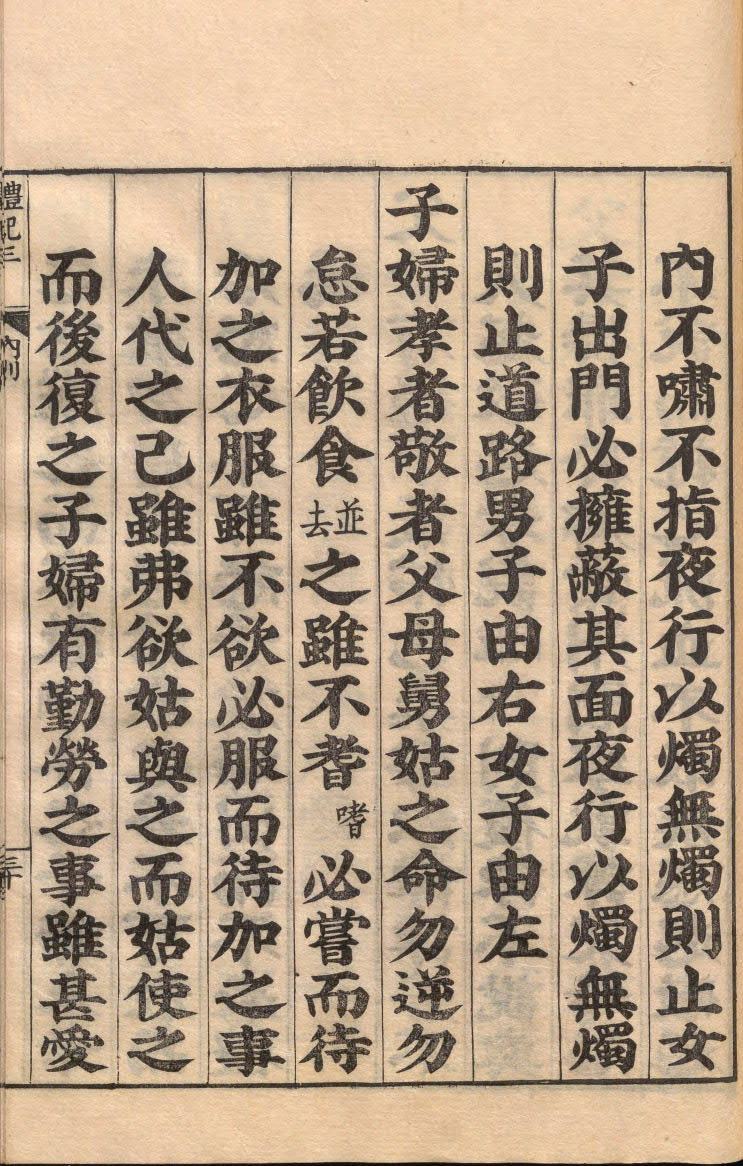 內不嘯不指夜行以燭無燭則止女
子出門必擁蔽其面夜行以燭無燭
則止道路男子由右女子由左
子婦孝者敬者父母舅姑之命勿逆勿
怠若飲食並去之雖不耆嗜必嘗而待
加之衣服雖不欲必服而待加之事
人代之己雖弗欲姑與之而姑使之
而後復之子婦有勤勞之事雖甚愛
禮記三
內則